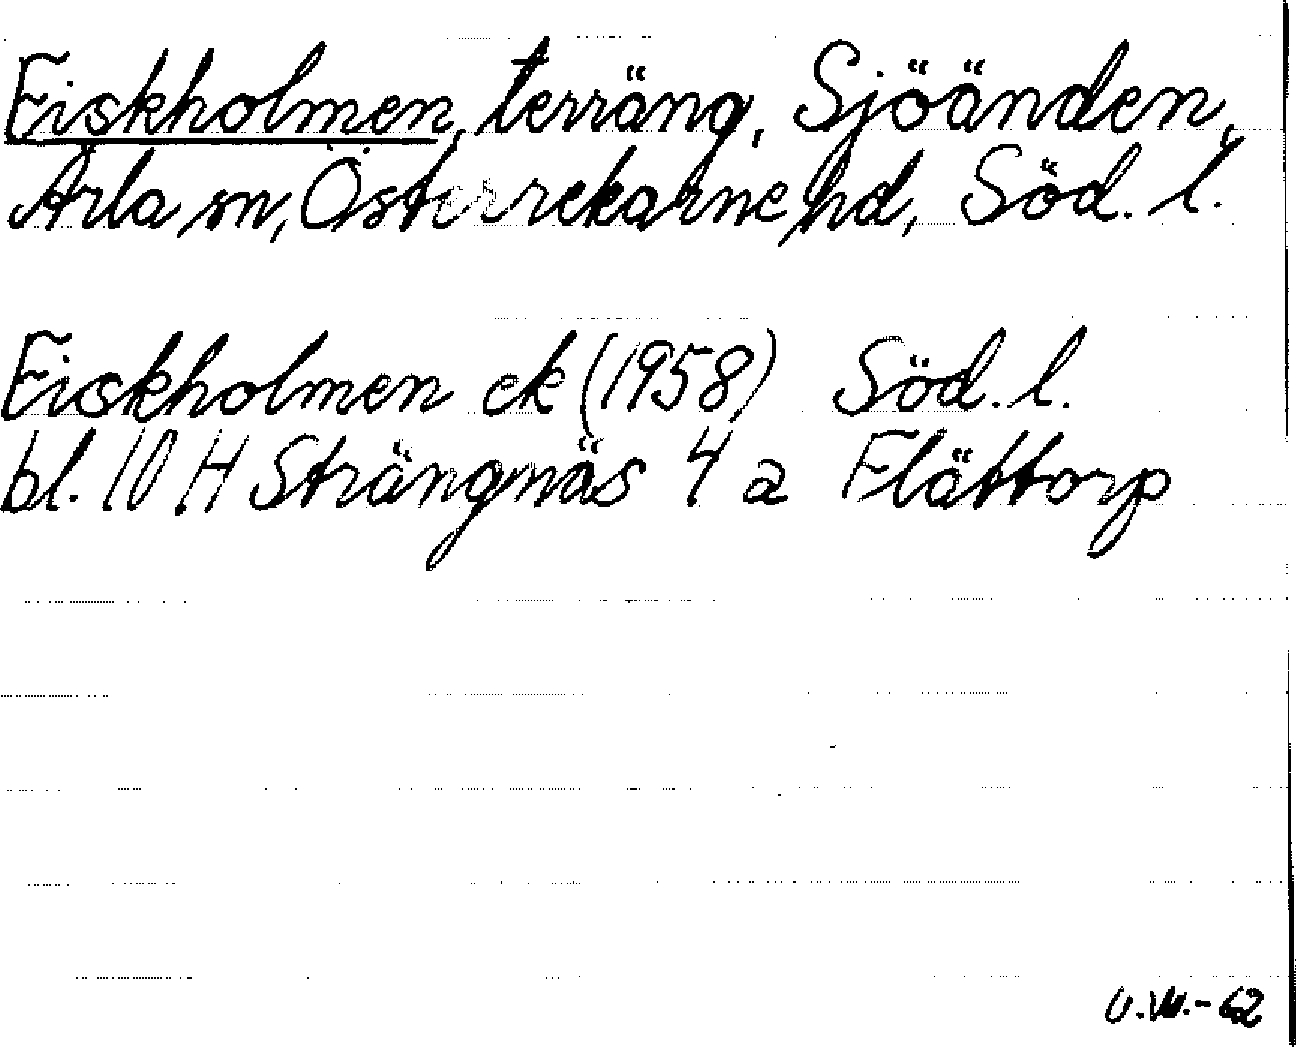 Fiskholmen, terräng, Sjöänden,
Ärla sn, Österrekarne hd, Söd. l.
Fiskholmen ek (1958) Söd. l.
bl. 10 H Strängnäs 4 a Flättorp
U.W.-62